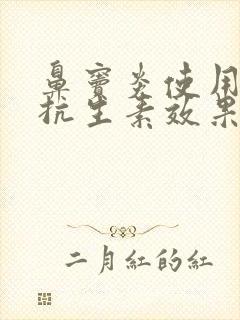 鼻窦炎使用
抗生素效果
二月紅的紅